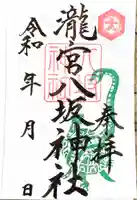 奉拝
瀧宮八坂神社
令和 年 月 日